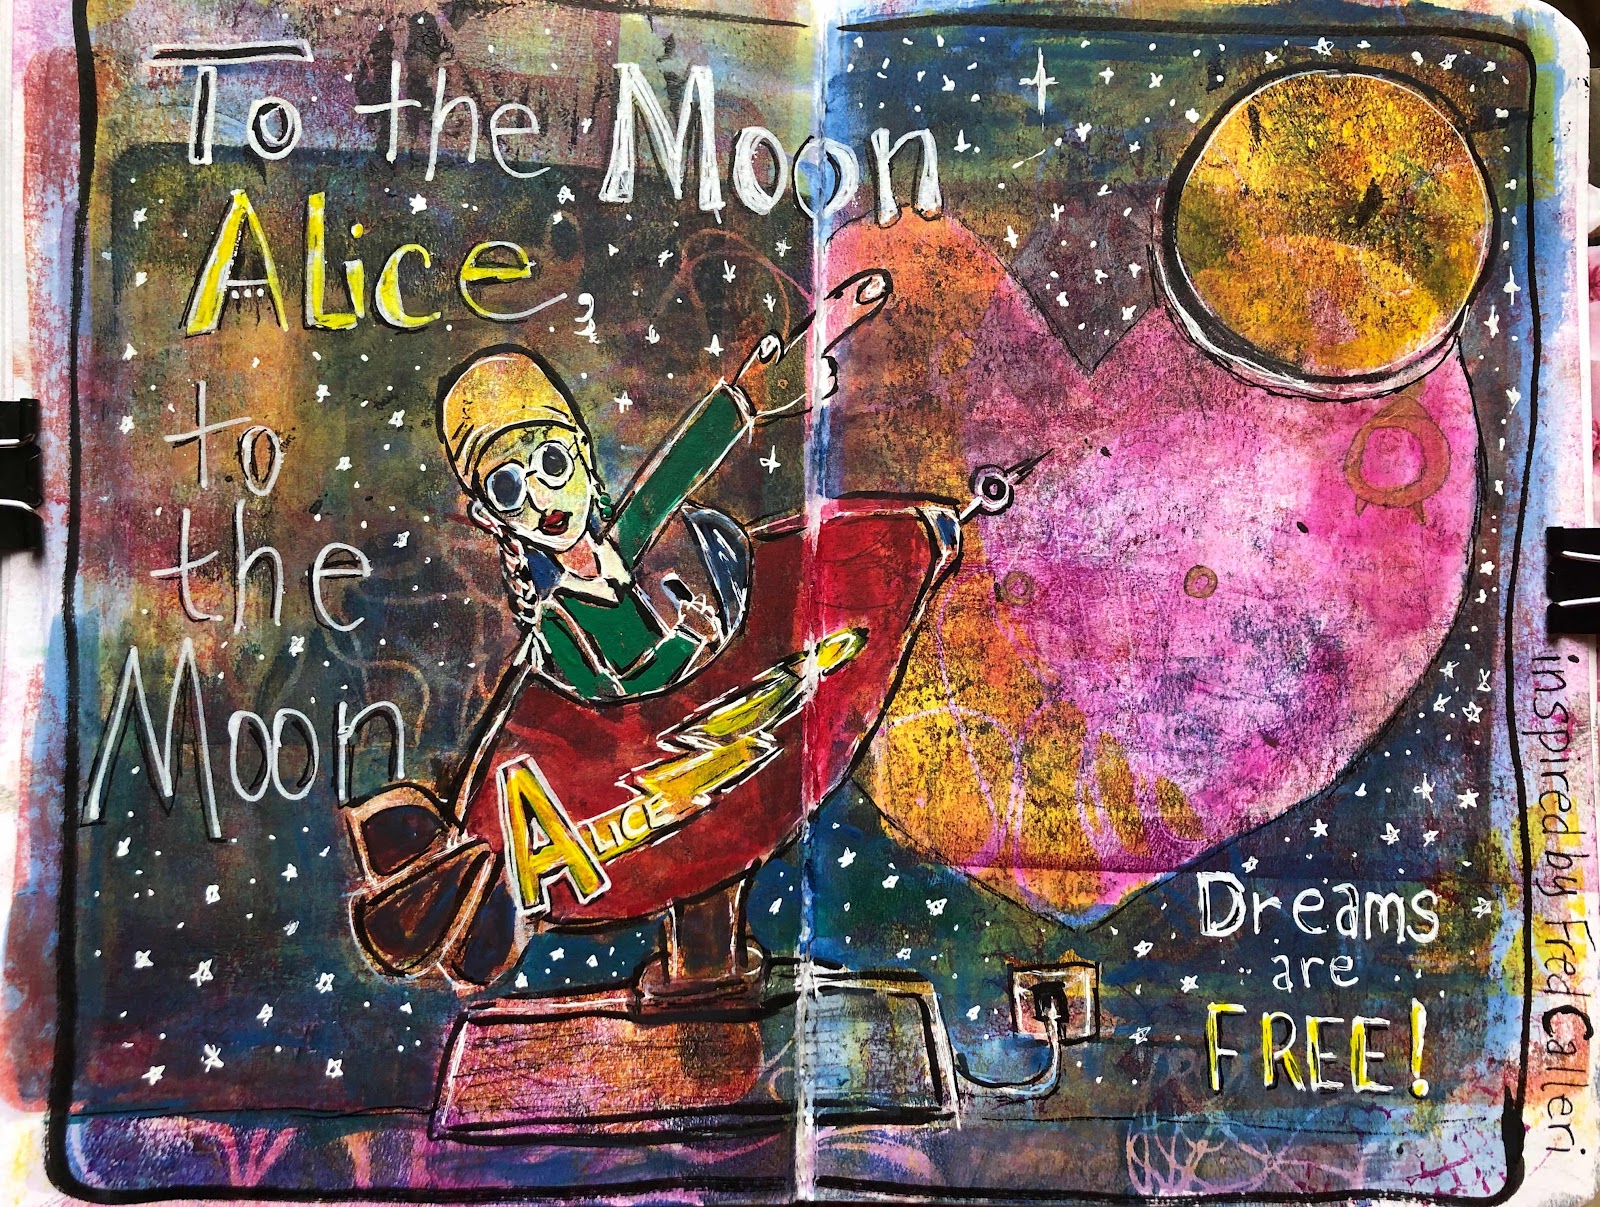 To the Moon
Alice,
to
the
Moon
ALICE
Dreams
are
FREE!
inspired by Fred Calleri